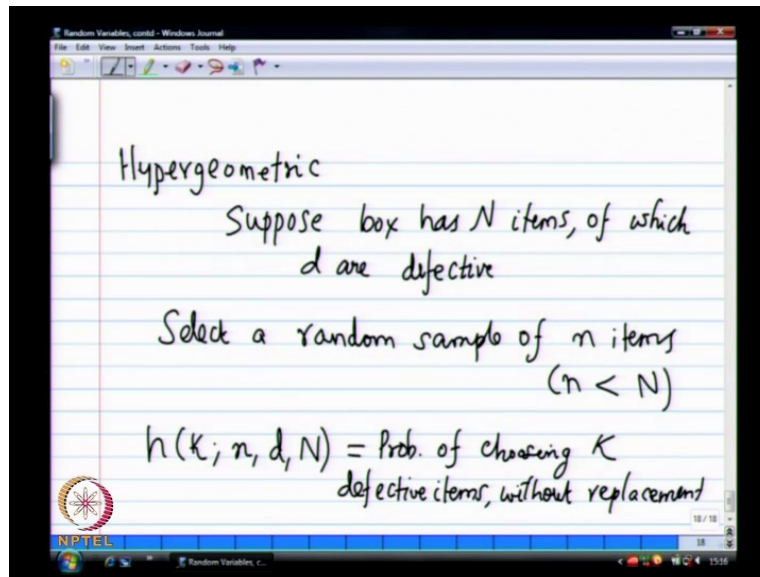 Random Variables, contd - Windows Journal
File Edit View Insert Actions Tools Help
Hypergeometric
Suppose box has N items, of which
d are defective
Select a random sample of n items
(n < N)
h(K; n, d, N) = Prob. of choosing K
defective items, without replacement
18 / 18
18
NPTEL
Random Variables, c...
15:16